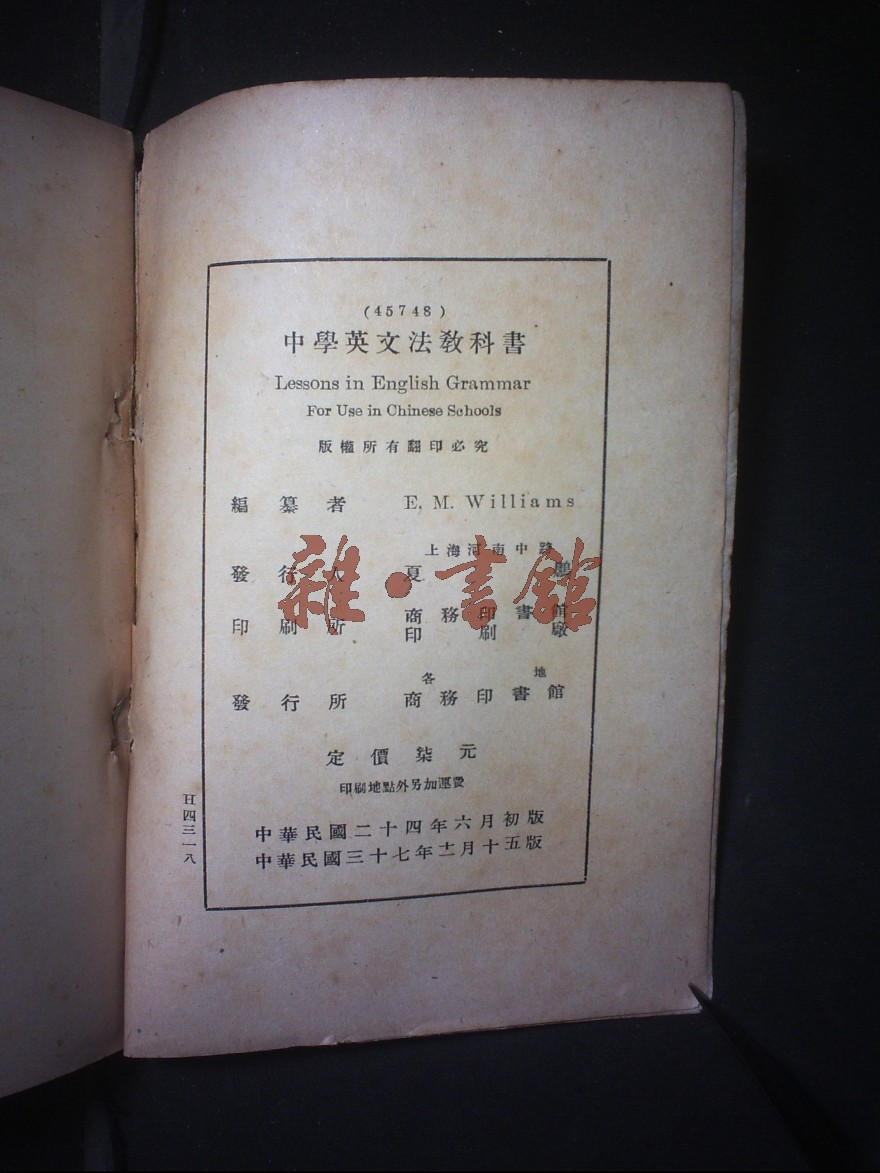 (45748)
中學英文法敎科書
Lessons in English Grammar
For Use in Chinese Schools
版權所有翻印必究
編纂者 E. M. Williams
上海河南中路
發行人 夏鵬
印刷所 商務印書館
印刷廠
各地
發行所 商務印書館
定價柒元
印刷地點外另加運費
中華民國二十四年六月初版
中華民國三十七年十二月十五版
H四三一八
雜·書館